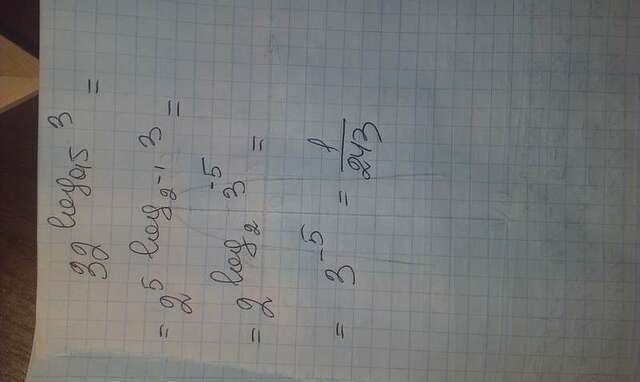 32 log₀,₅ 3 =
= 2⁵ log₂⁻¹ 3 =
= 2 log₂ 3⁻⁵ =
= 3⁻⁵ = 1/243